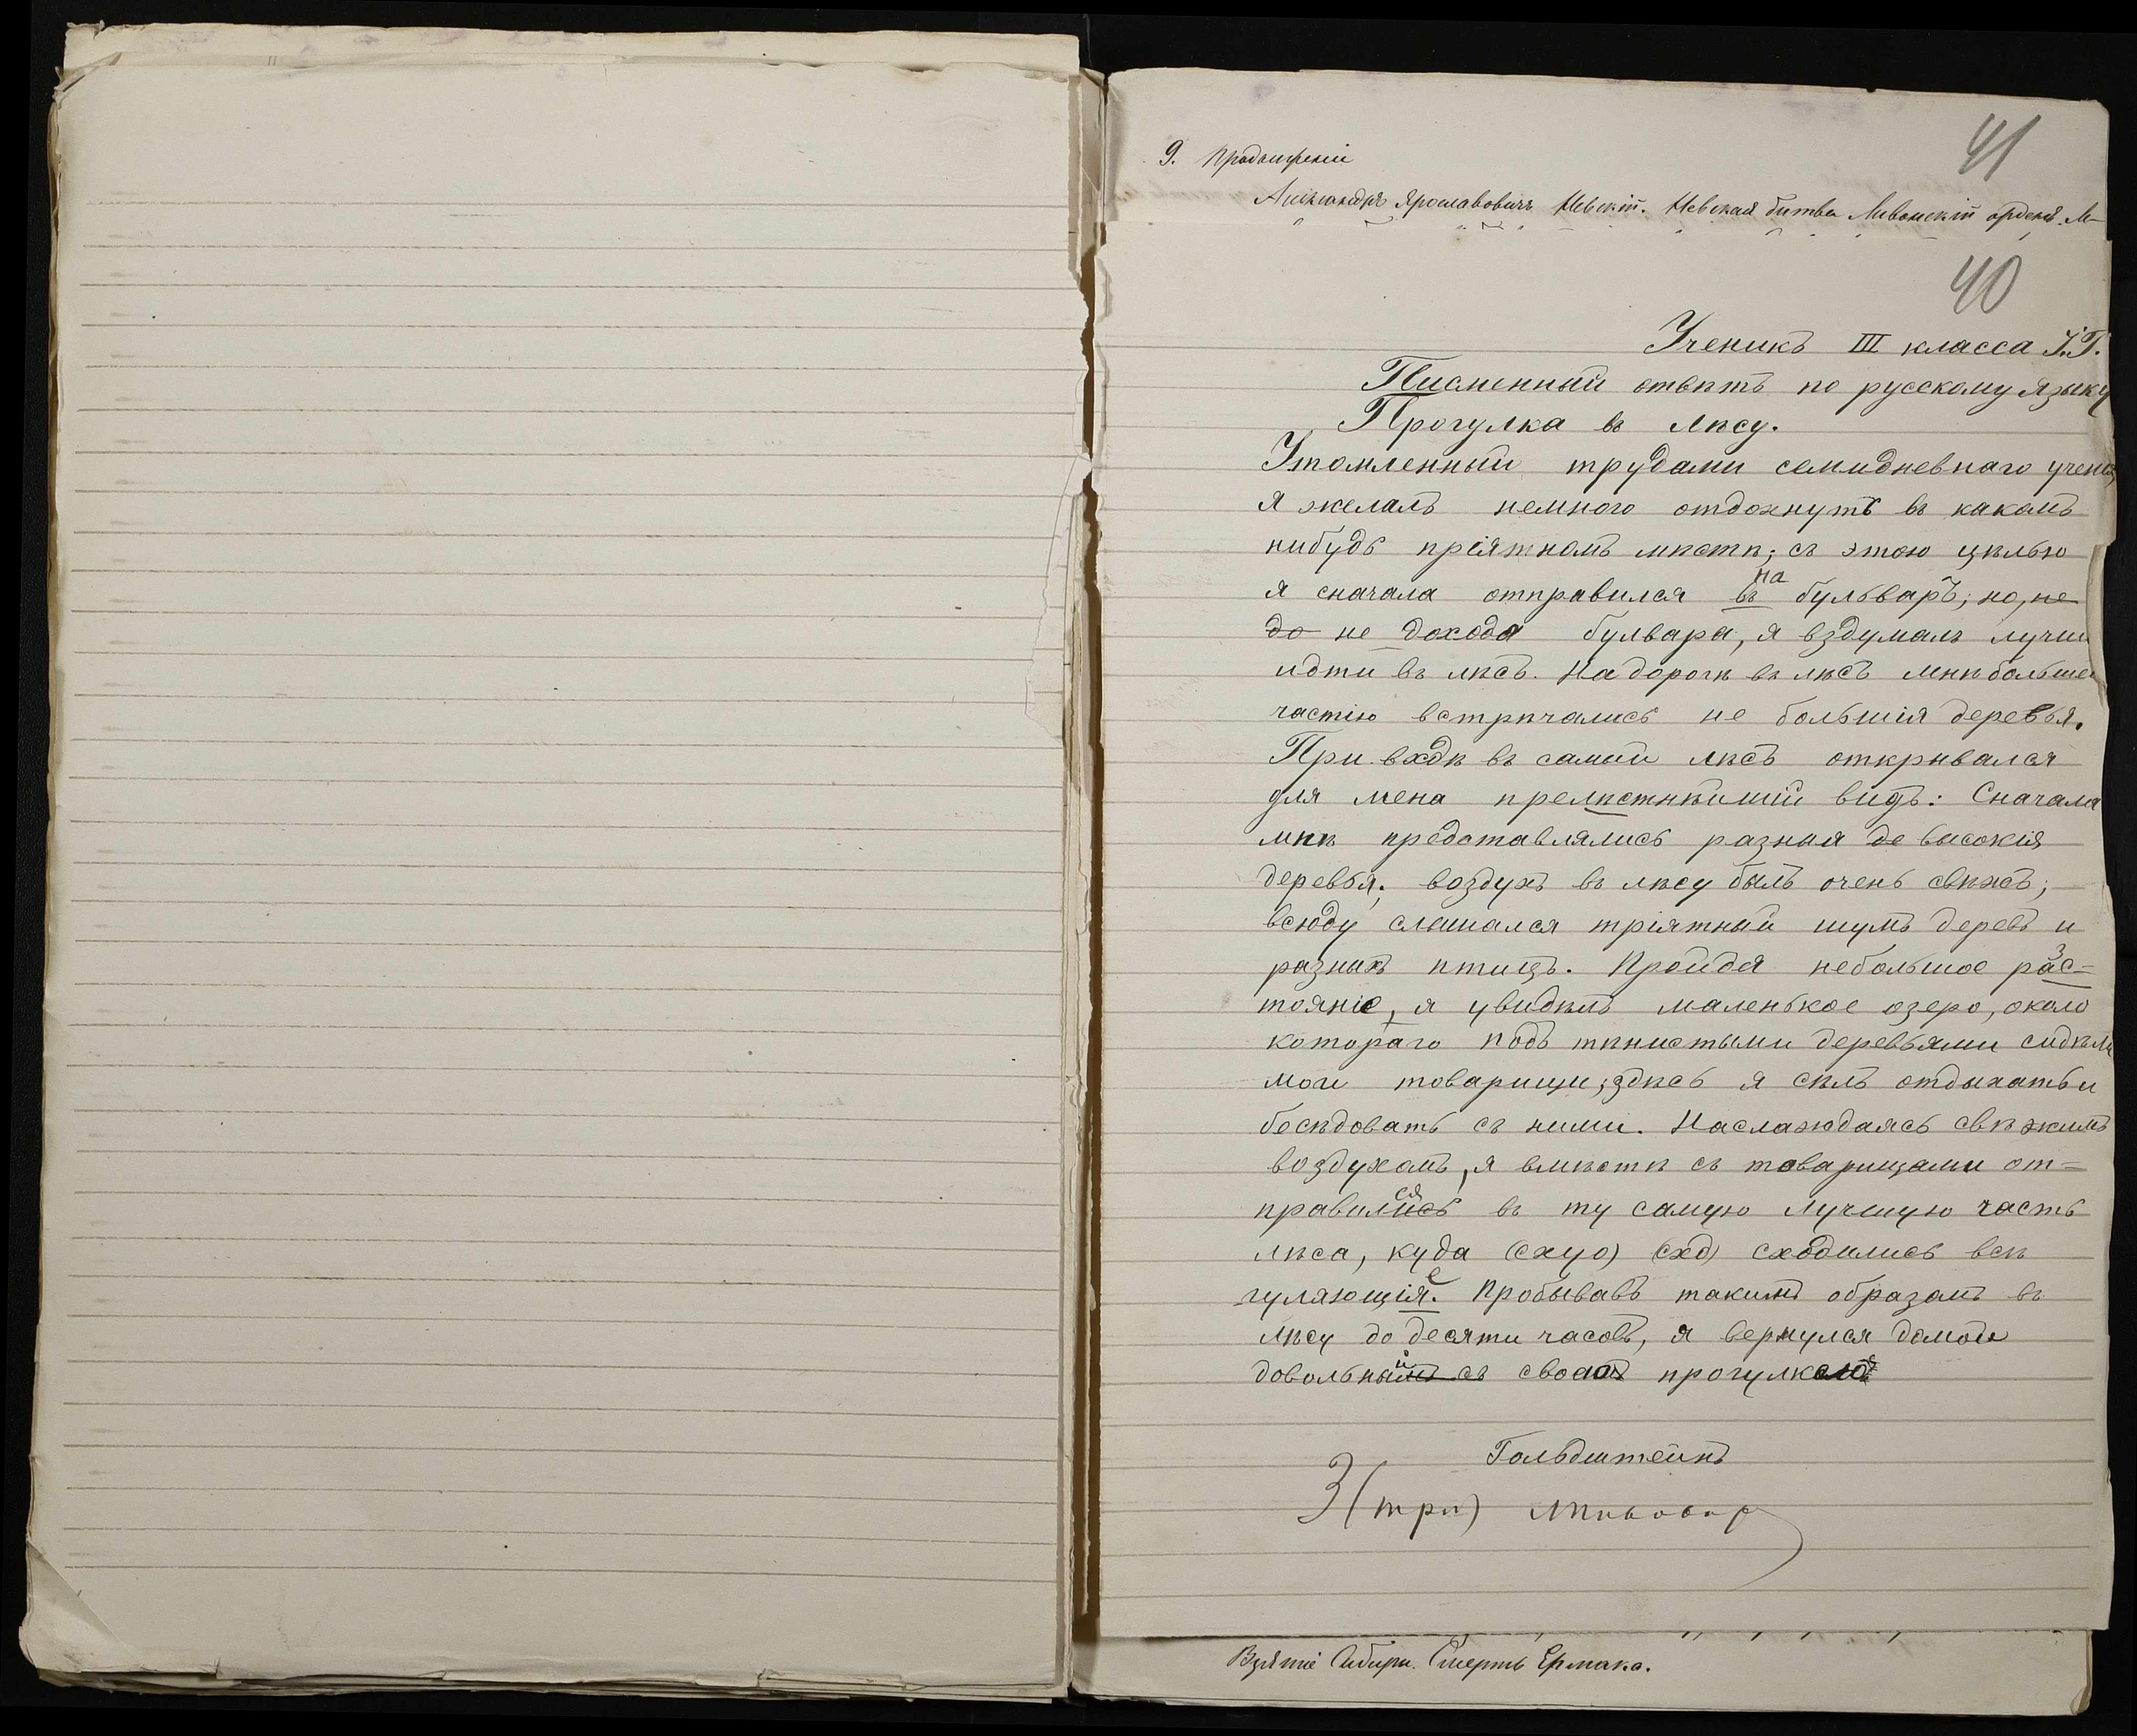 41
9. Продолженіи
Александръ Ярославовичъ Невскій. Невская битва Ливонскій орденъ. М-
40
Ученикъ III класса І. Г.
Писменный отвѣтъ по русскому языку
Прогулка въ лѣсу.
Утомленный трудами семидневнаго учень
я желалъ немного отдохнуть въ какомъ
нибудь пріятномъ мѣстѣ; съ этою цѣлью
я сначала отправился въ на бульваръ; но, не
до не доходя булвара, я вздумалъ лучше
идти въ лѣсъ. На дорогѣ въ лѣсъ мнѣ большею
частію встрѣчались не большія деревья.
При входѣ въ самый лѣсъ открывался
для мена прелѣстнѣйшій видъ: Сначала
мнѣ предотавлялись разныя де высокія
деревья; воздухъ въ лѣсу былъ очень свѣжъ;
всюду слышался пріятный шумъ деревъ и
разныхъ птицъ. Пройдя небольшое рас=
тояніе, я увидѣлъ маленькое озеро, около
котораго подъ тѣнистыми деревьями сидѣли
мои товарищи; здѣсь я сѣлъ отдыхать и
бесѣдовать съ ними. Наслаждаясь свѣжимъ
воздухомъ, я вмѣстѣ съ товарищами от=
правились ся въ ту самую лучшую часть
лѣса, куда (схуо) (схд) сходились всѣ
гуляющія е. Пробывавъ такимъ образомъ въ
лѣсу до десяти часовъ, я вернулся домой
довольнымъ й съ своей прогулкой
Гольдштейнъ
3 (три)
Взятіе Сибири. Смерть Ермака.